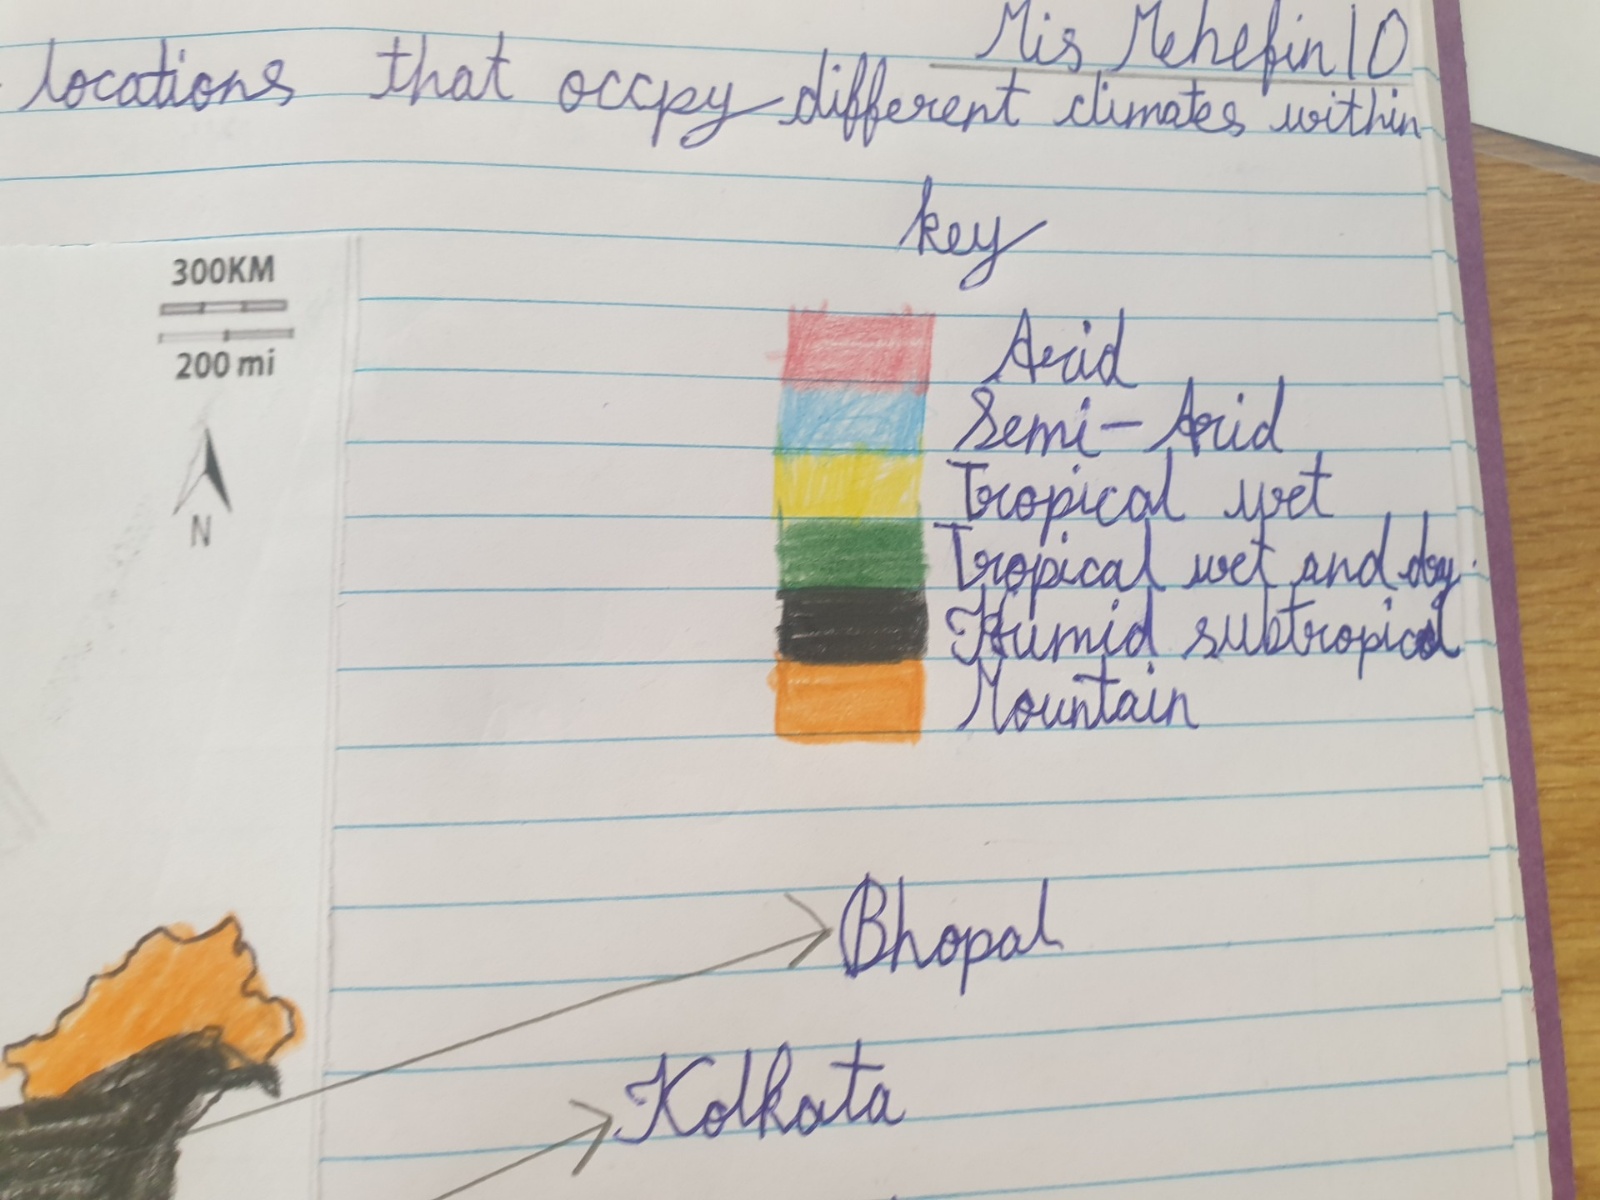 Mis Mehefin 10
locations that occpy different climates within
key
300KM
200 mi
N
Arid
Semi-Arid
Tropical wet
Tropical wet and dry.
Humid subtropical
Mountain
Bhopal
Kolkata